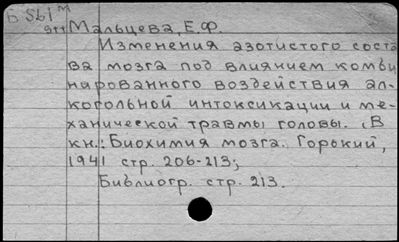 Б 561 м
911 Мальцева, Е.Ф.
Изменения азотистого соста
ва мозга под влиянием комби
нарованного воздействия ал-
когольной интоксикации и ме-
ханической травмы головы. (В
кн.: Биохимия мозга. Горький,
1941 стр. 206-213;
Библиогр. стр. 213.